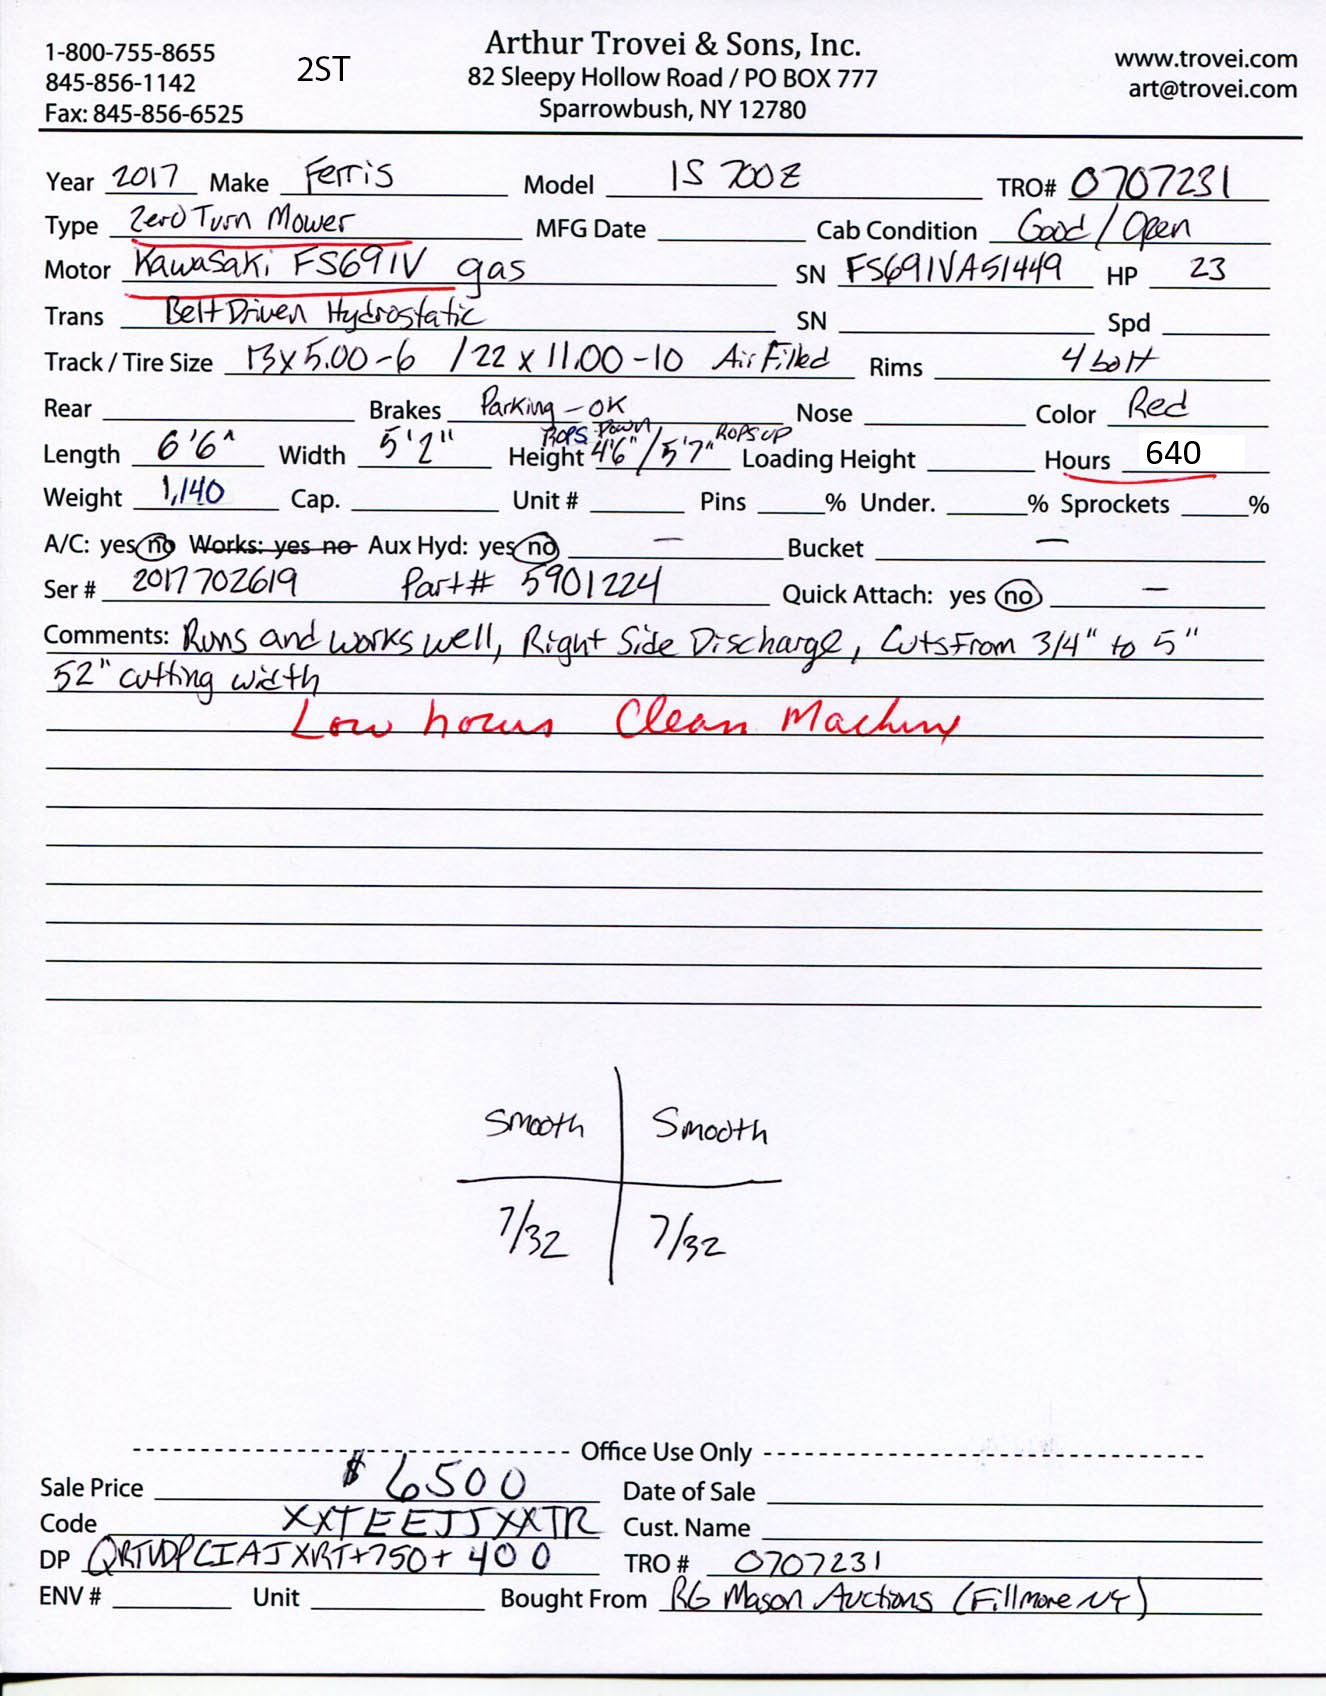 1-800-755-8655
845-856-1142
Fax: 845-856-6525
2ST
Arthur Trovei & Sons, Inc.
82 Sleepy Hollow Road / PO BOX 777
Sparrowbush, NY 12780
www.trovei.com
art@trovei.com
Year 2017 Make Ferris Model IS 700Z TRO# 0707231
Type Zero Turn Mower MFG Date Cab Condition Good / Open
Motor Kawasaki FS691V gas SN FS691VA51449 HP 23
Trans Belt Driven Hydrostatic SN Spd
Track / Tire Size 13x5.00-6 / 22 x 11.00-10 Air Filled Rims 4 bolt
Rear Brakes Parking - OK Nose Color Red
Length 6'6" Width 5'2" Height ROPS Down 4'6" / 5'7" ROPS up Loading Height Hours 640
Weight 1,140 Cap. Unit # Pins % Under. % Sprockets %
A/C: yes no Works: yes no Aux Hyd: yes no — Bucket —
Ser # 2017702619 Part# 5901224 Quick Attach: yes no —
Comments: Runs and works well, Right Side Discharge, Cuts From 3/4" to 5"
52" cutting width
Low hours Clean Machine
Smooth Smooth
7/32 7/32
Office Use Only
Sale Price $6500 Date of Sale
Code XXTEEJJXXTR Cust. Name
DP +750+400 TRO # 0707231
ENV # Unit Bought From RG Mason Auctions (Fillmore NY)